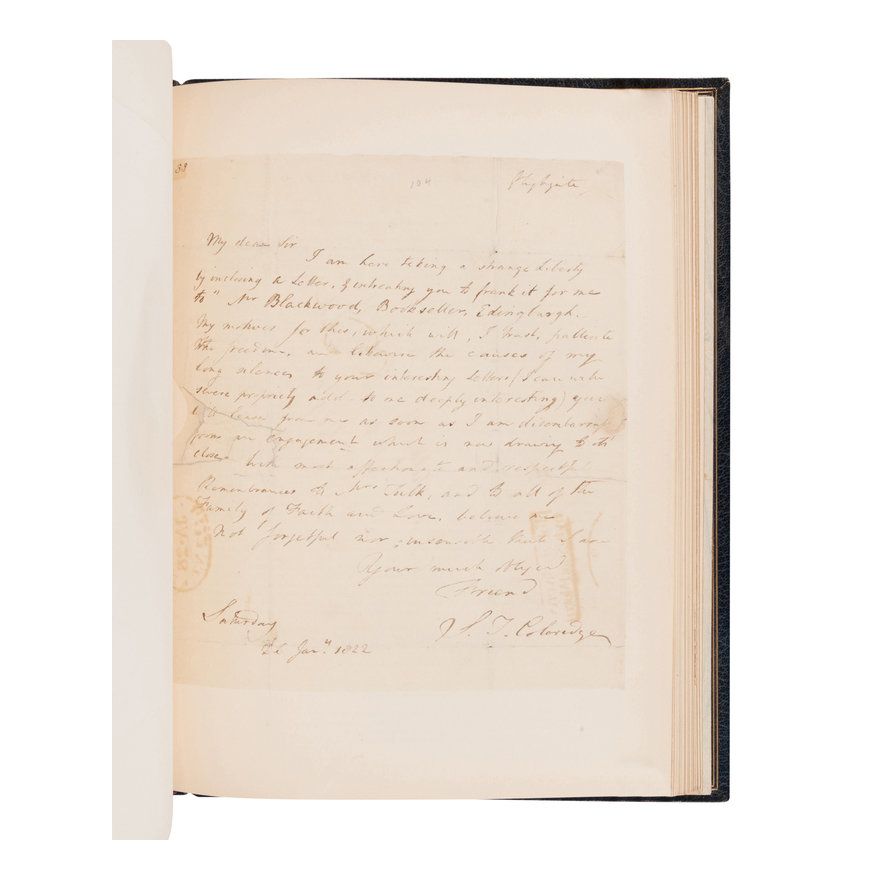 58
104
Highgate
My dear Sir
I am here taking a strange Liberty
by inclosing a Letter, & intreating you to frank it for me
to "Mr Blackwood, Bookseller, Edinburgh.
My motives for this, which will, I trust, palliate
the freedom, as likewise the causes of my
long silence to your interesting Letters (I can with
severe propriety add to me deeply interesting) you
will learn from me as soon as I am
from an engagement which is now drawing to its
close. With most affectionate and respectful
Remembrances to Mrs Tulk, and to all of the
Family of Faith and Love, believe me
Not forgetful nor insensible that I am
Your much obliged
Friend
S. T. Coleridge
Saturday
26 Jany 1822